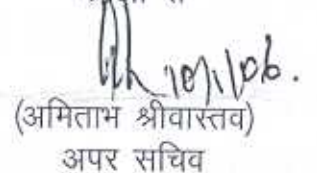 10/1/06.
(अमिताभ श्रीवास्तव)
अपर सचिव